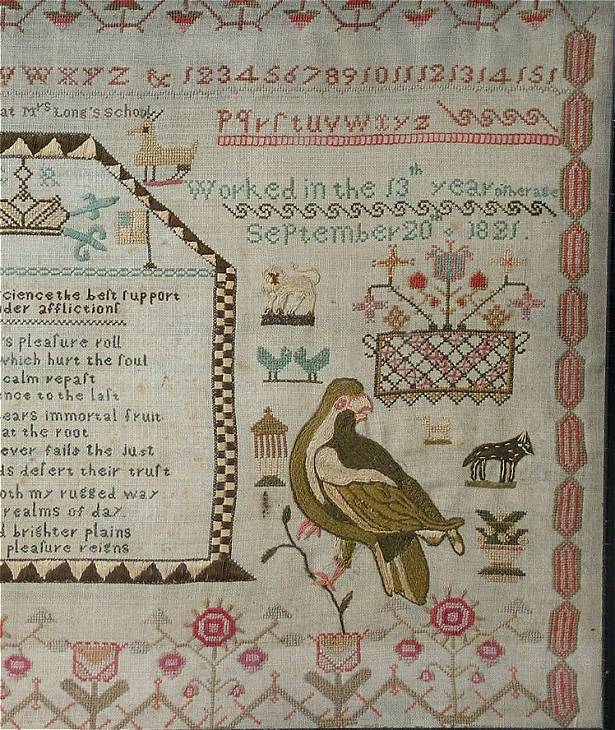 VWXYZ & 123456789101112131415 1
at Mrs Long's School
Pqrſtuvwxyz
R
Worked in the 13th year of her age
September 20th 1821.
cience the beſt ſupport
der afflictionſ
s pleaſure roll
which hurt the ſoul
calm repaſt
ence to the laſt
ears immortal fruit
at the root
ever fails the Juſt
ds deſert their truſt
oth my rugged way
realms of day
d brighter plains
pleaſure reigns